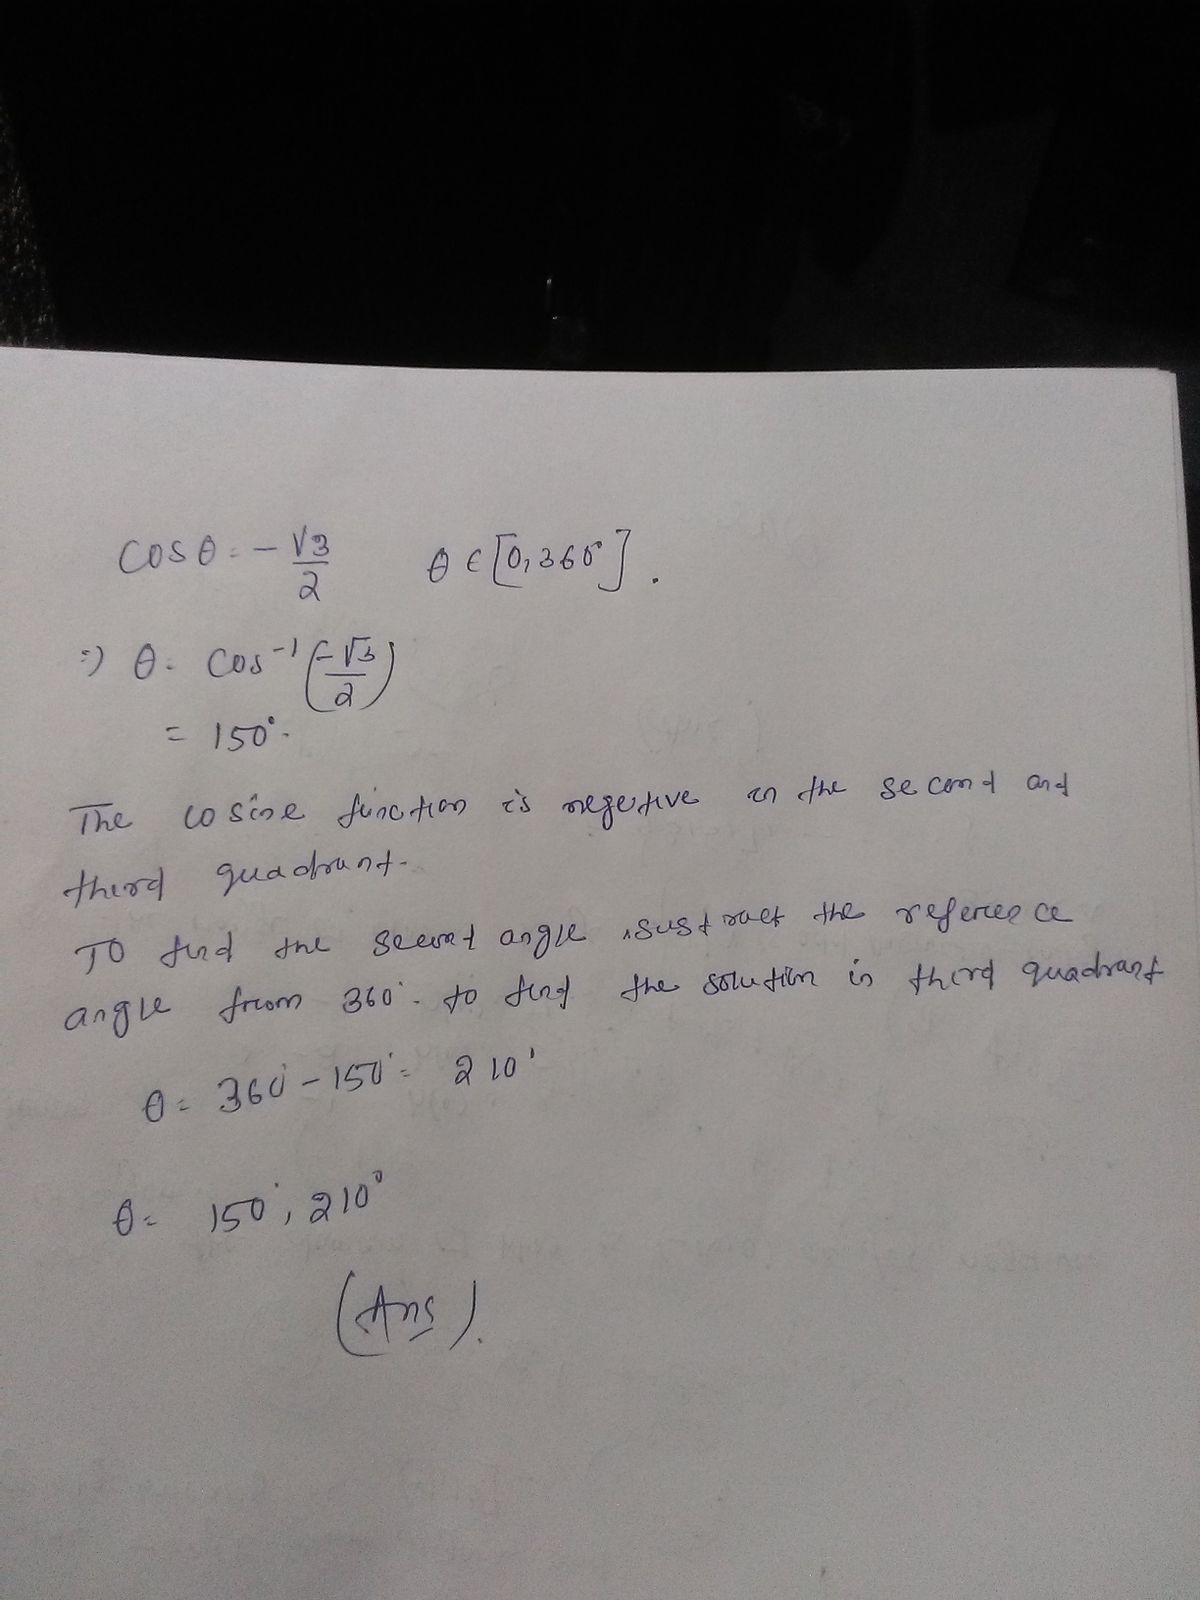 cosθ = -√3/2 θ ∈ [0, 360°].
⇒ θ = cos⁻¹(-√3/2)
= 150°.
The cosine function is negetive in the second and
third quadrant.
TO find the second angle, sustract the reference
angle from 360°. to find the solution in third quadrant
θ = 360° - 150° = 210°
θ = 150°, 210°
(Ans).